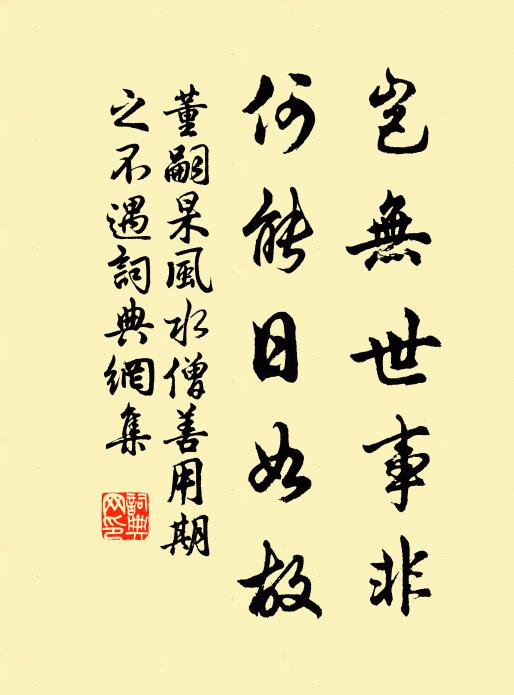 豈無世事非
何能日如故
董嗣杲風水僧善用期
之不遇詞典網集
詞典網印